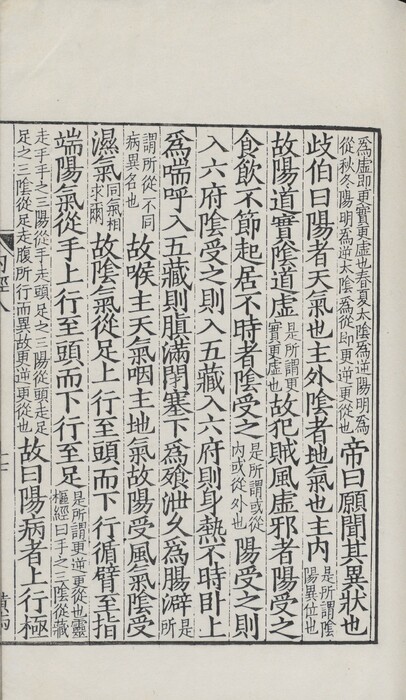 爲虛即更實更虛也春夏太陰爲逆陽明爲
從秋冬陽明爲逆太陰爲從即更逆更從也
帝曰願聞其異狀也
歧伯曰陽者天氣也主外陰者地氣也主內
是所謂陰
陽異位也
故陽道實陰道虛
是所謂更
實更虛也
故犯賊風虛邪者陽受之
食飲不節起居不時者陰受之
是所謂或從
內或從外也
陽受之則
入六府陰受之則入五藏入六府則身熱不時臥上
爲喘呼入五藏則䐜滿閉塞下爲飱泄久爲腸澼
是
謂所從不同
病異名也
故喉主天氣咽主地氣故陽受風氣陰受
濕氣
同氣相
求爾
故陰氣從足上行至頭而下行循臂至指
端陽氣從手上行至頭而下行至足
是所謂更逆更從也靈
樞經曰手之三陰從藏
走手手之三陽從手走頭足之三陽從頭走足
足之三陰從足走腹所行而異故更逆更從也
故曰陽病者上行極
內經八